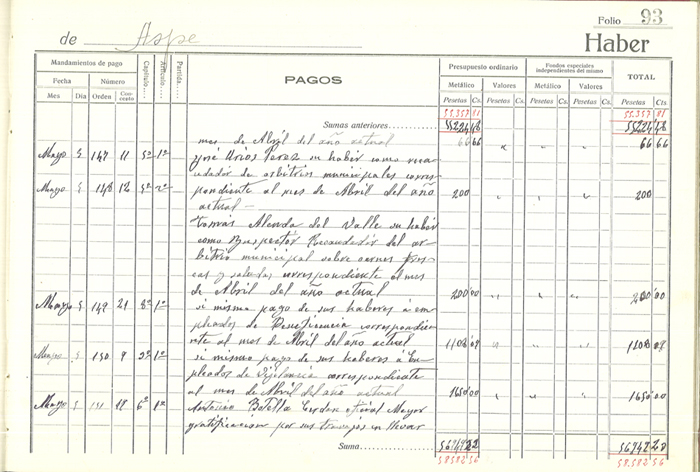 Folio 93
de Aspe Haber
Mandamientos de pago
Fecha Número
Mes Día Orden Concepto
Capítulo Artículo Partida
PAGOS
Presupuesto ordinario
Metálico Valores
Pesetas Cs. Pesetas Cs.
Fondos especiales independientes del mismo
Metálico Valores
Pesetas Cs. Pesetas Cs.
TOTAL
Pesetas Cts
55.357 81 55.357 81
Sumas anteriores 55224 48 55224 48
mes de Abril del año actual 66 66 66 66
Mayo 5 147 11 5º 1º José Perez su haber como recau
dador de arbitrios municipales corres
Mayo 5 148 12 5º 2º pondiente al mes de Abril del año 200 200
actual
Tomás Alenda del Valle su haber
como Inspector Recaudador del ar
bitrio municipal sobre carnes fres
cas y saladas correspondiente al mes
de Abril del año actual 200 00 200 00
Mayo 5 149 21 8º 1º si mismo pago de sus haberes à em
pleados de Beneficencia correspondie
nte al mes de Abril del año actual 1108 08 1108 08
Mayo 5 150 9 1º si mismo pago de sus haberes à Em
pleados de Vijilancia correspondiente
al mes de Abril del año actual 1650 00 1650 00
Mayo 5 6º 1º Antonino Botella Cerdan oficial Mayor
gratificacion por sus trabajos en llevar
Suma
58.582 56 58.582 56